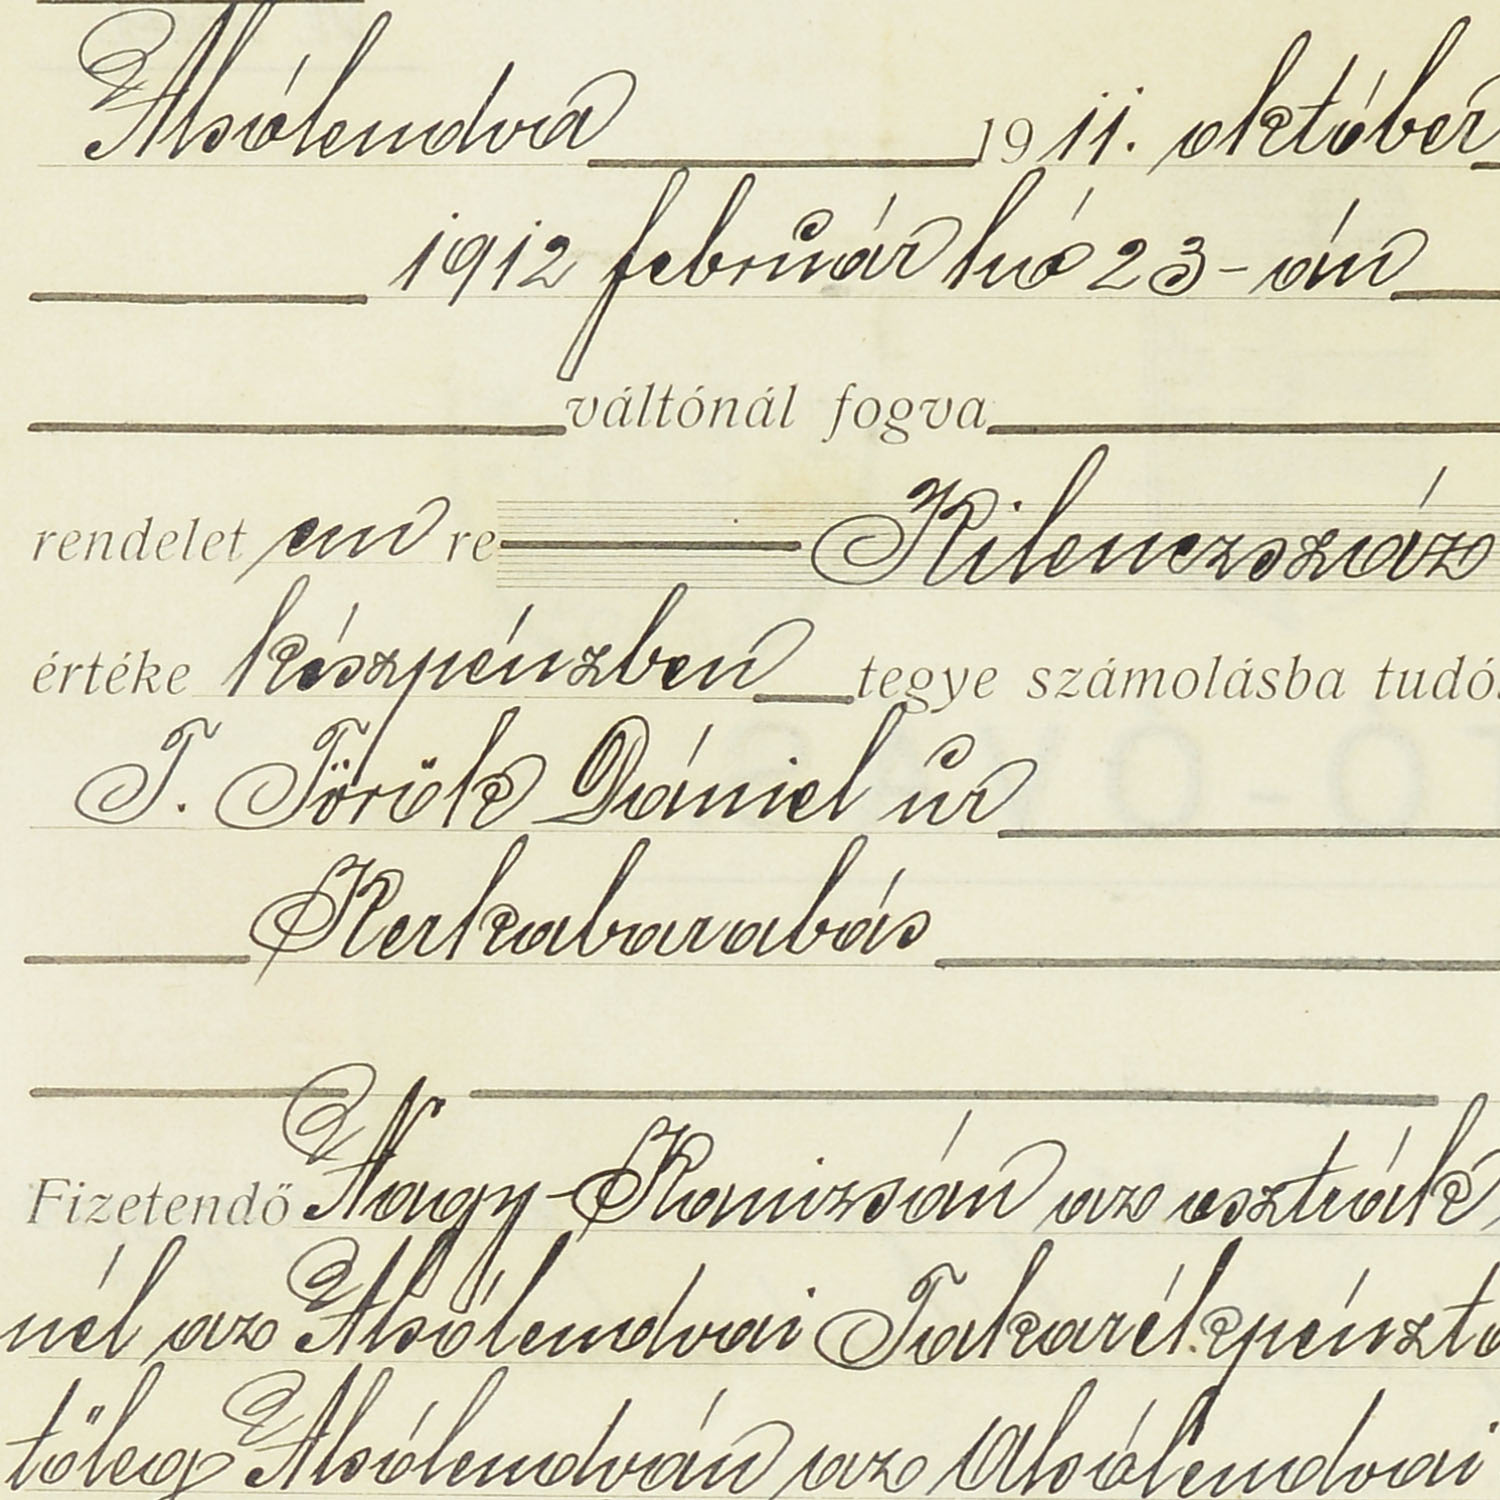 Alsólendva 1911. október
1912 február hó 23-án
váltónál fogva
rendelet em re Kilenczszáz
értéke készpénzben tegye számolásba tudós
T. Török Dániel úr
Kerkabarabás
Fizetendő Nagy-Kanizsán az osztrák
nél az Alsólendvai Takarékpénztá
tőleg Alsólendván az Alsólendvai